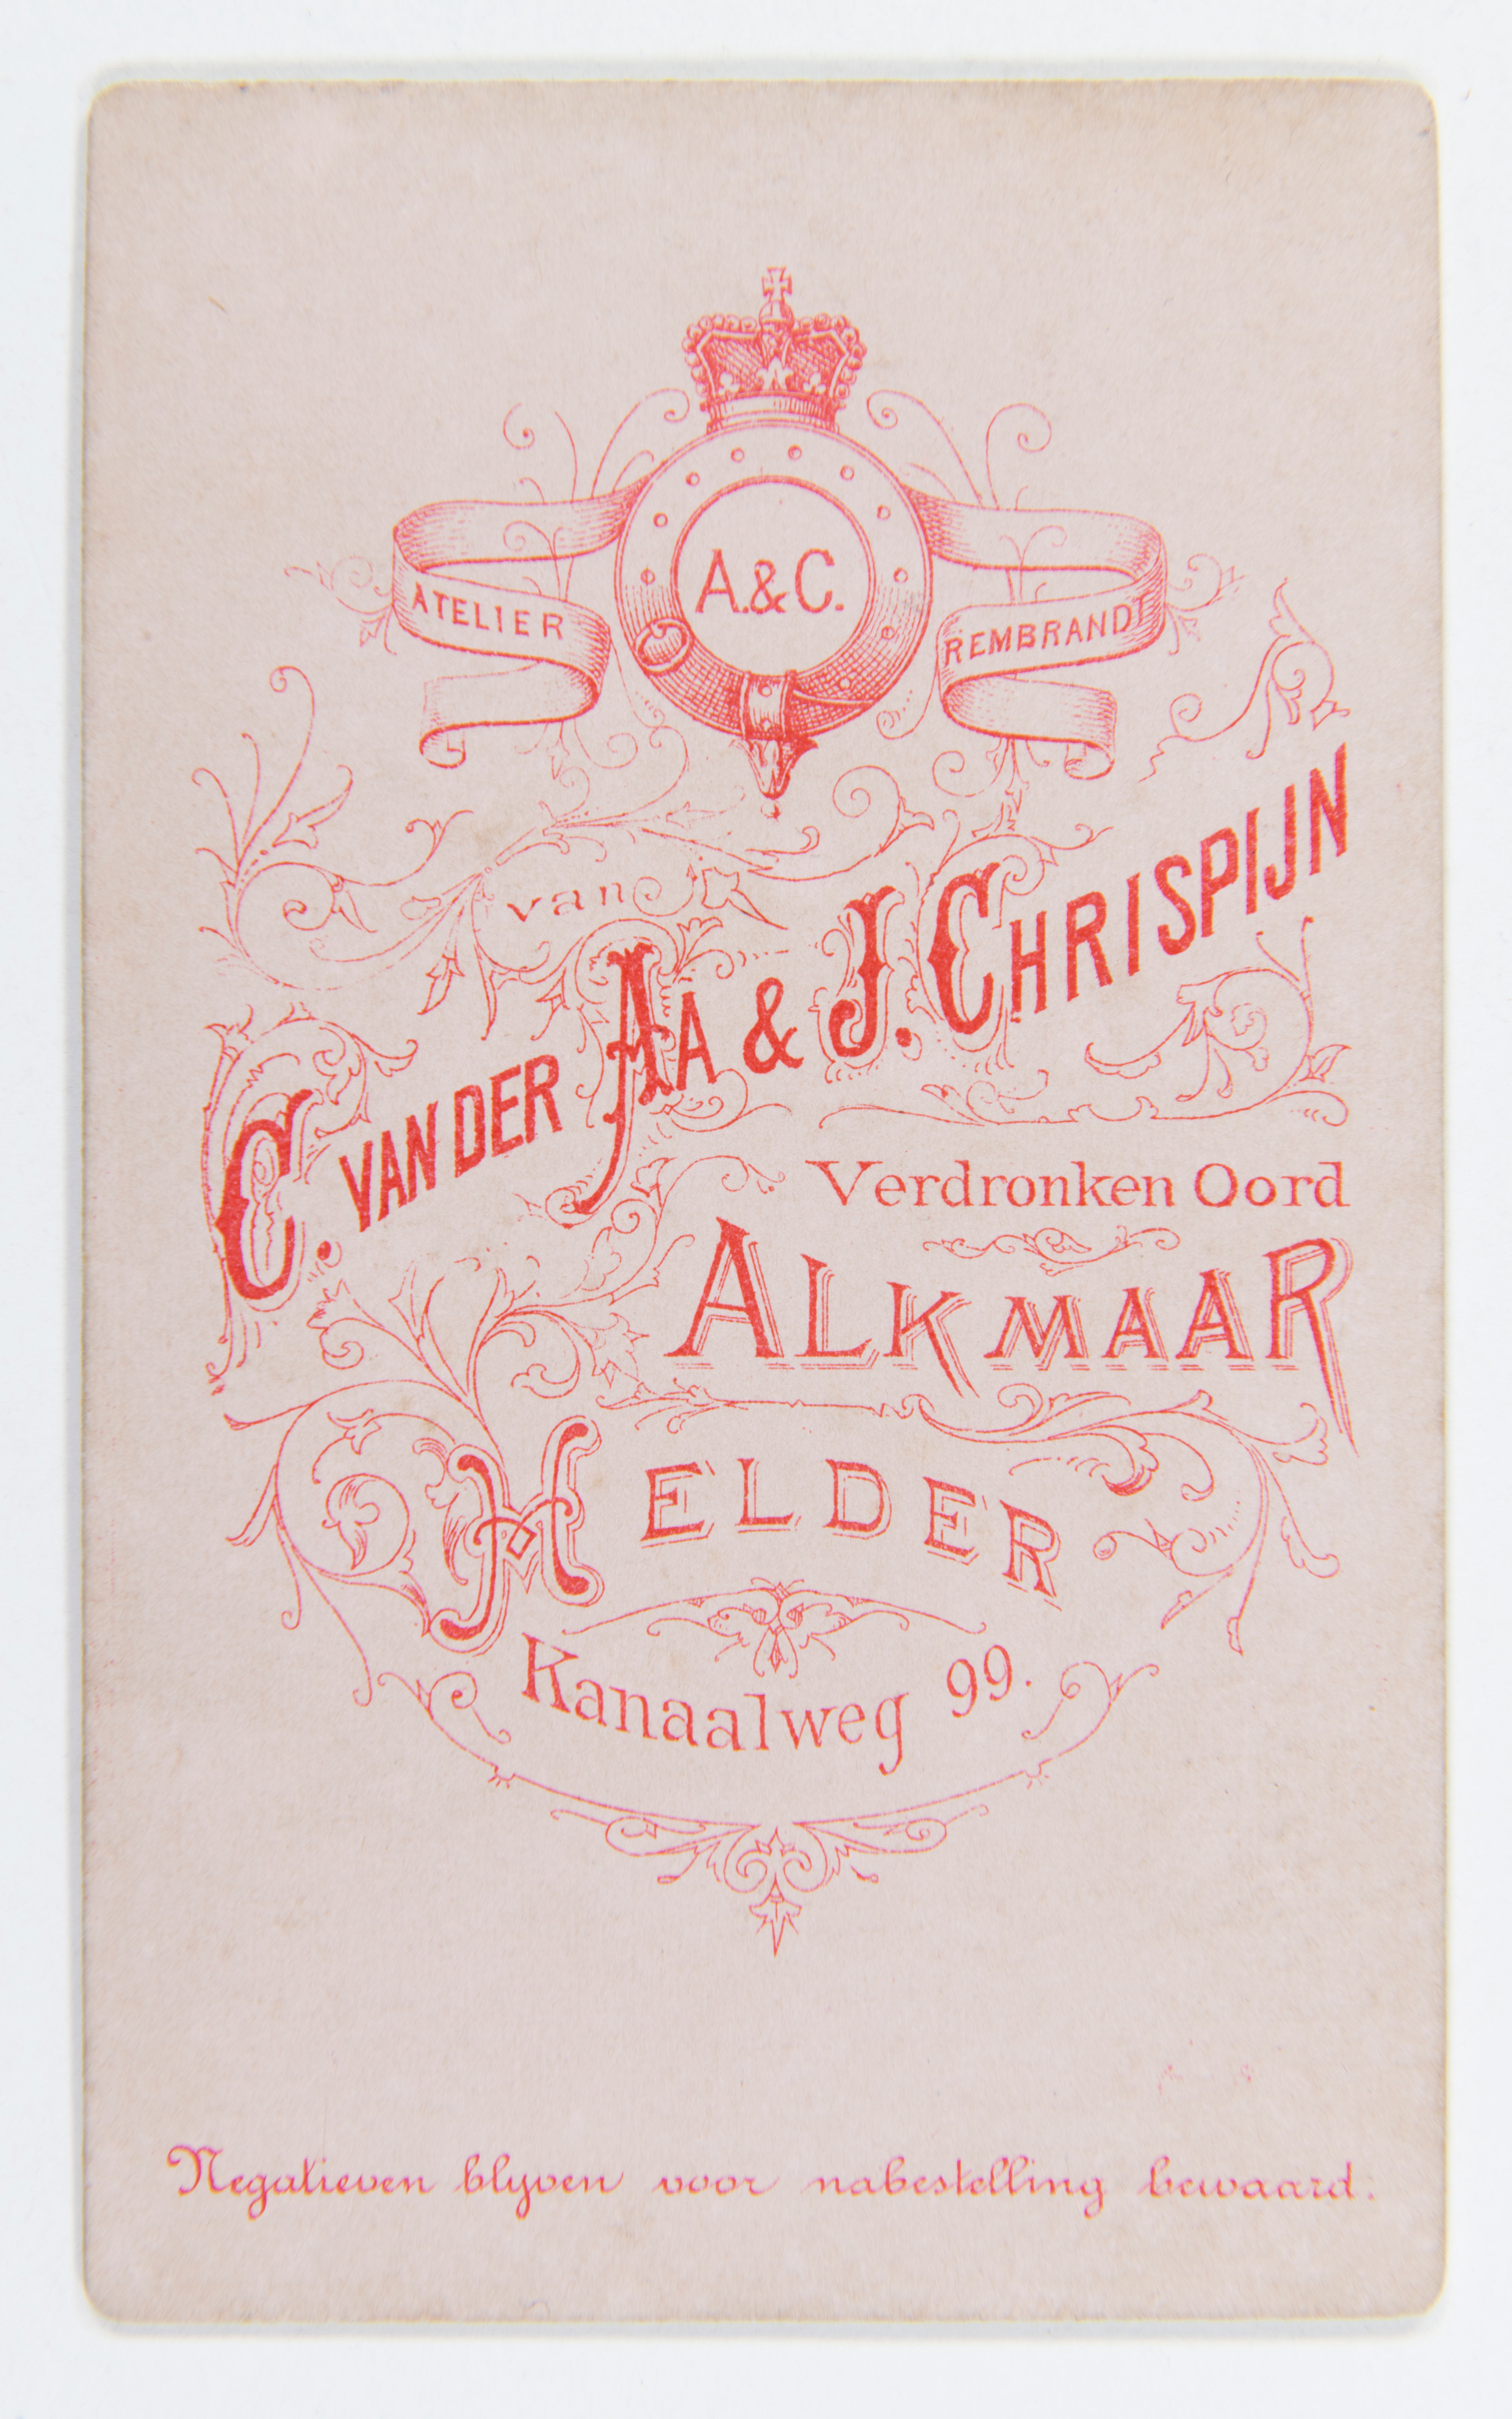 A.&C.
ATELIER
REMBRANDT
van
C. VAN DER AA & J. CHRISPIJN
Verdronken Oord
ALKMAAR
HELDER
Kanaalweg 99.
Negatieven blyven voor nabestelling bewaard.